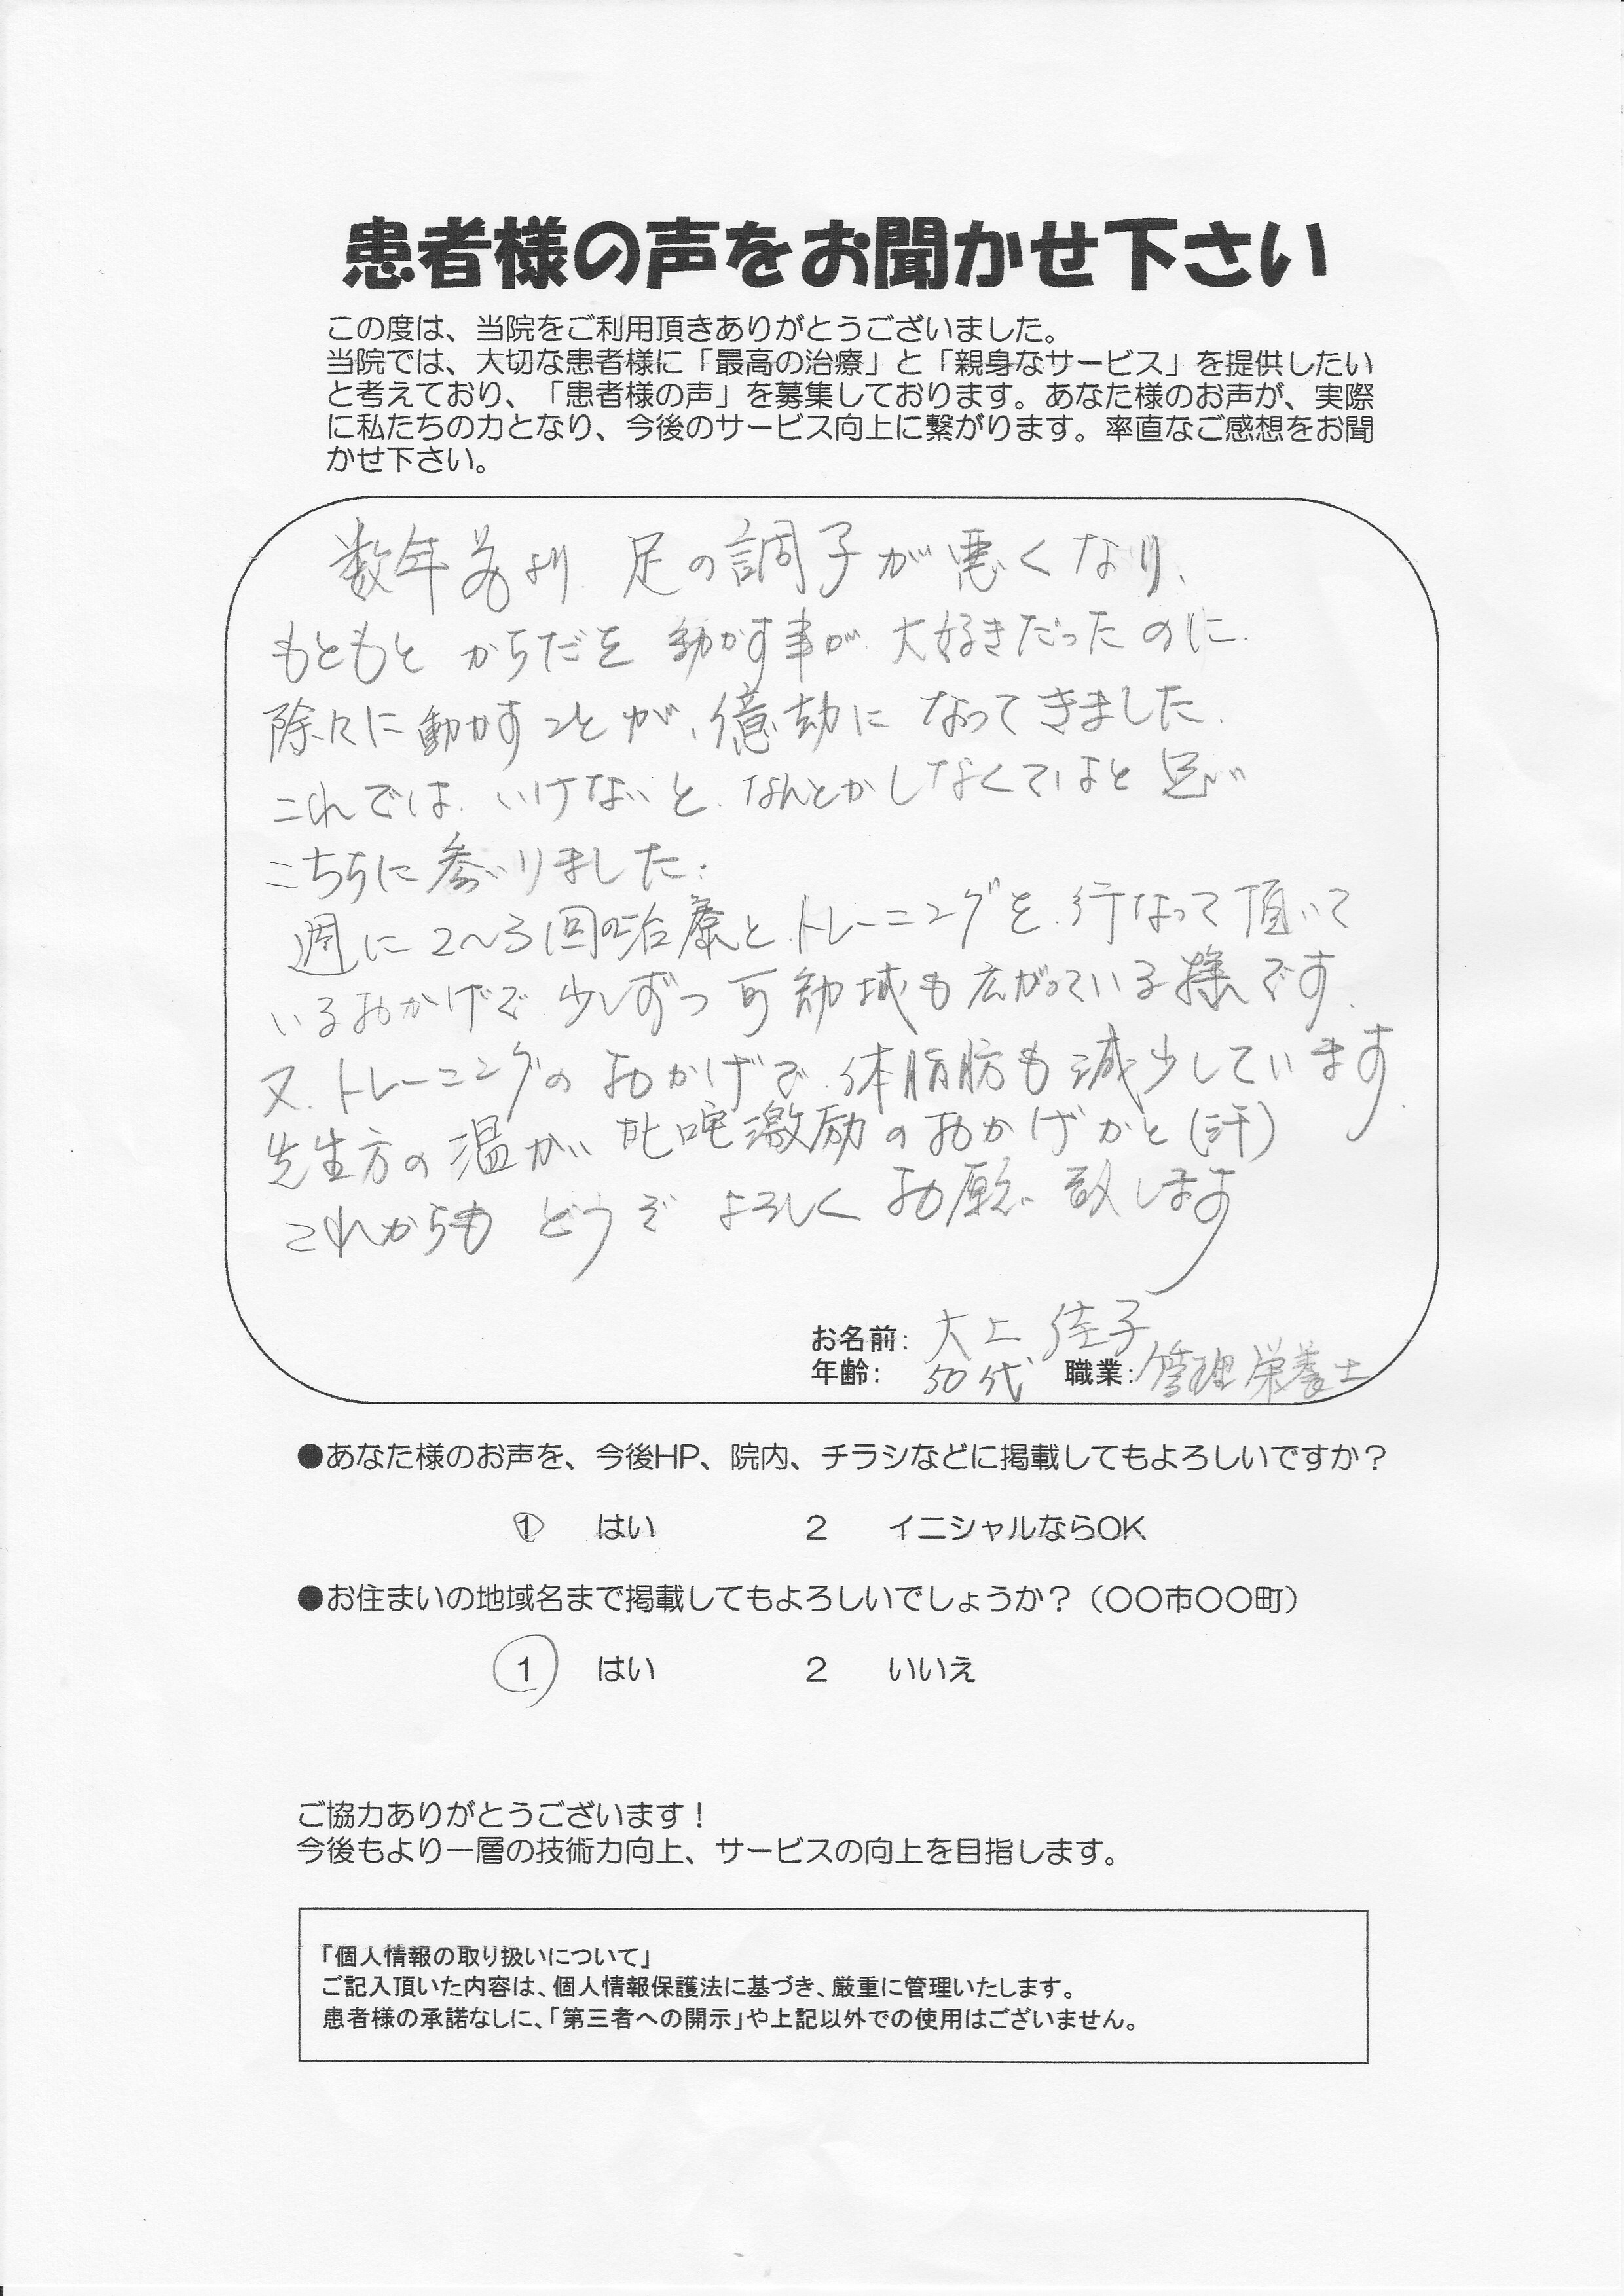 患者様の声をお聞かせ下さい
この度は、当院をご利用頂きありがとうございました。
当院では、大切な患者様に「最高の治療」と「親身なサービス」を提供したい
と考えており、「患者様の声」を募集しております。あなた様のお声が、実際
に私たちの力となり、今後のサービス向上に繋がります。率直なご感想をお聞
かせ下さい。
数年前より 足の調子が悪くなり、
もともと からだを 動かす事が 大好きだったのに、
除々に動かすことが、億劫に なってきました。
これでは、いけないと、なんとかしなくてはと 思い
こちらに参いりました。
週に2〜3回の治療とトレーニングを、行なって頂いて
いるおかげで 少しずつ可動域も広がっている様です。
又、トレーニングの おかげで 体脂肪も減少しています。
先生方の温かい 叱咤激励のおかげかと(汗)
これからも どうぞ よろしく お願い致します
お名前: 大上 佳子
年齢: 50代 職業: 管理栄養士
●あなた様のお声を、今後HP、院内、チラシなどに掲載してもよろしいですか？
1 はい 2 イニシャルならOK
●お住まいの地域名まで掲載してもよろしいでしょうか？（〇〇市〇〇町）
1 はい 2 いいえ
ご協力ありがとうございます！
今後もより一層の技術力向上、サービスの向上を目指します。
「個人情報の取り扱いについて」
ご記入頂いた内容は、個人情報保護法に基づき、厳重に管理いたします。
患者様の承諾なしに、「第三者への開示」や上記以外での使用はございません。